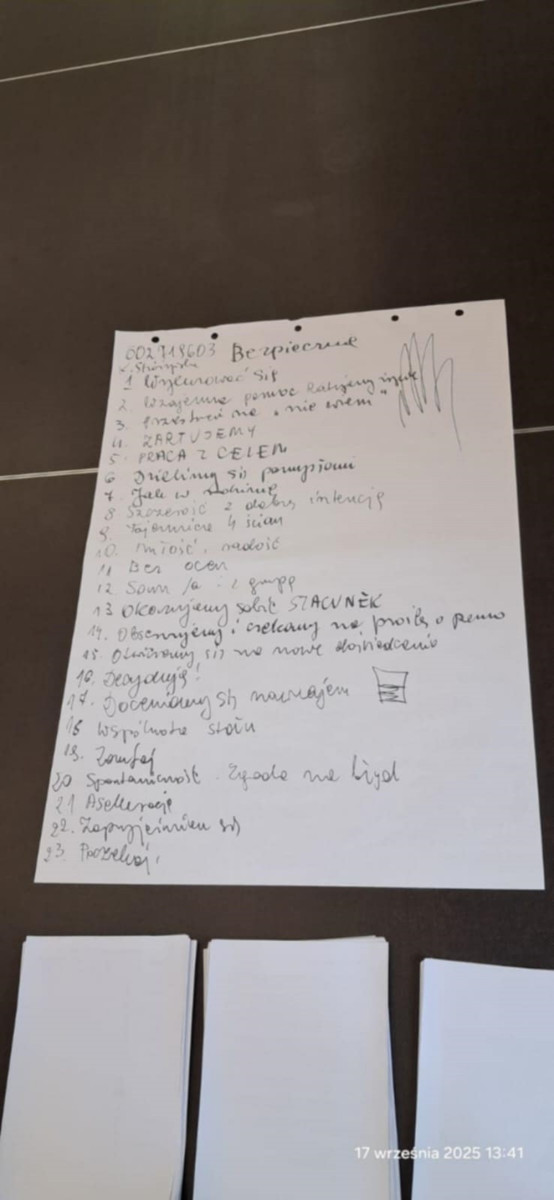 602918603 Bezpiecznie
1 Wysłuchować się
2. Wzajemna pomoc Ratujemy życie
3. Przestrzeń na „nie wiem”
4. ŻARTUJEMY
5. PRACA Z CELEM
6 Dzielimy się pomysłami
7. Jak w rodzinie
8 Szczerość z dobrą intencją
9. Tajemnica 4 ścian
10. miłość, radość
11 Bez ocen
12. Sam /a i z grupą
13 Okazujemy sobie SZACUNEK
14. Obserwujemy i czekamy na prośbę o pomoc
15. Otwieramy się na nowe doświadczenia
16. Decydują!
17. Doceniamy się nawzajem
18 Wspólnota stołu
19. Zaufaj
20 Spontaniczność. Zgoda na błąd
21 Asekuracja
22. Zaprzyjaźniam się
23. Poczekaj,
17 września 2025 13:41